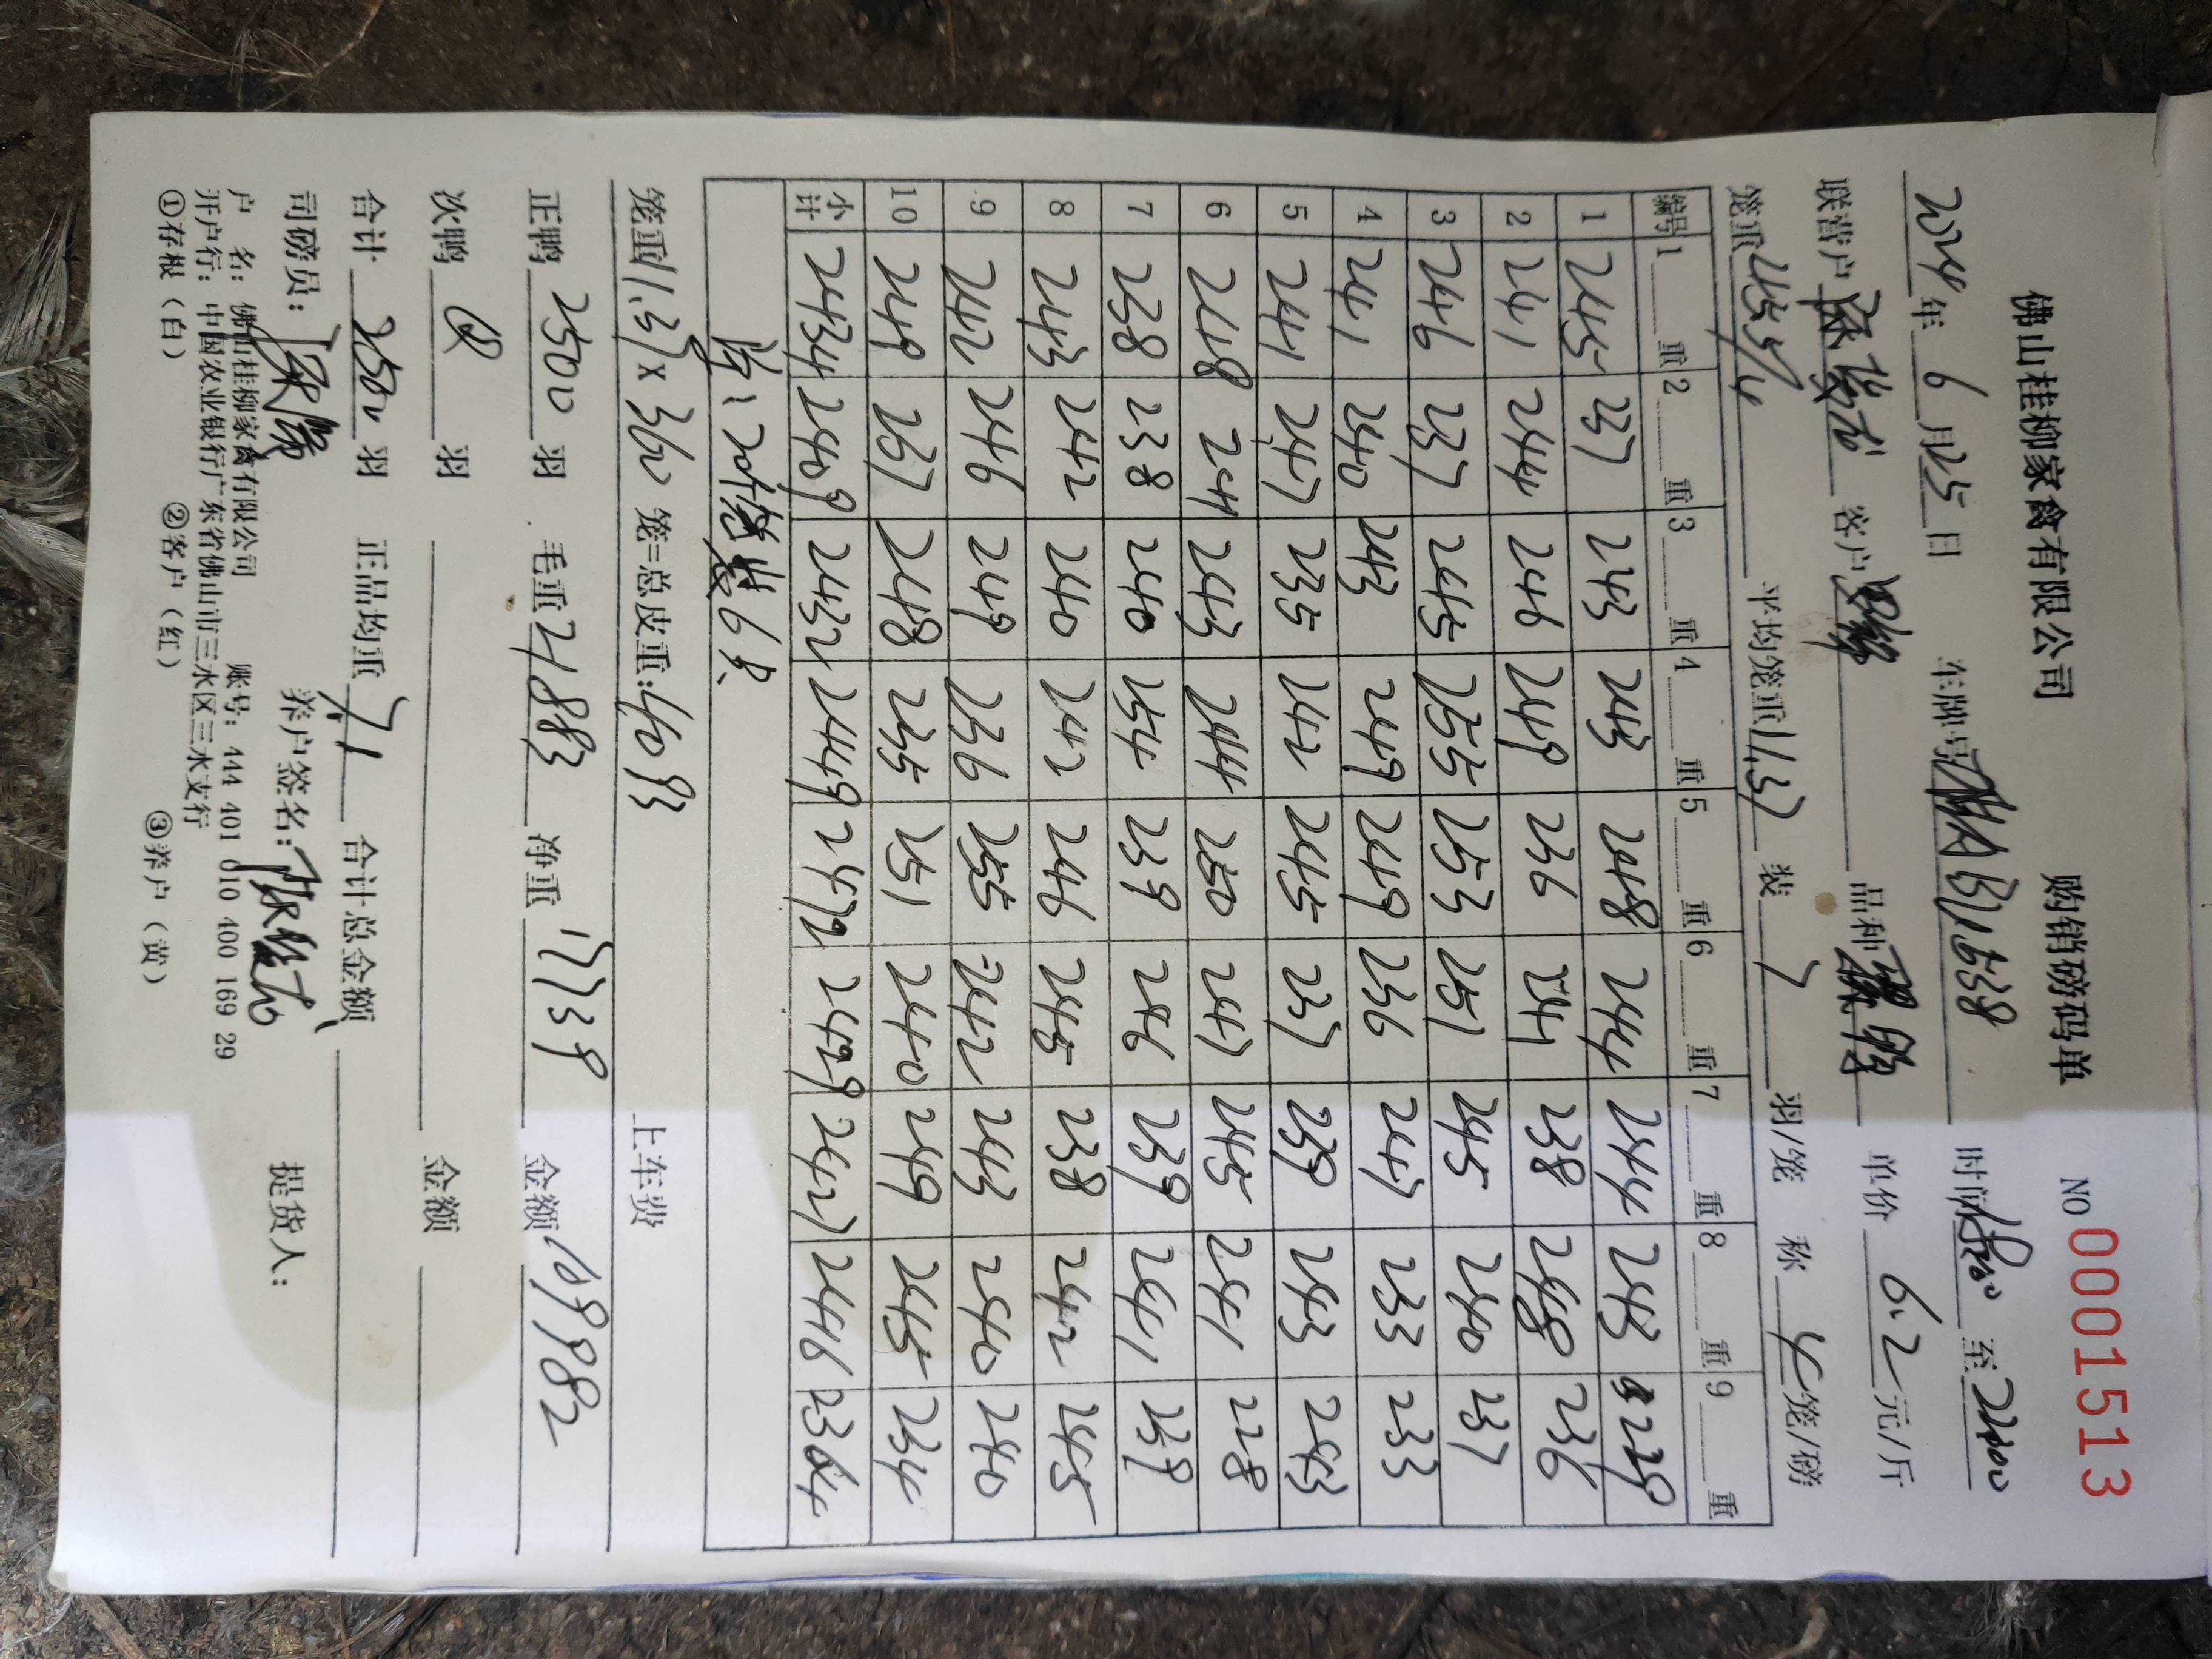 佛山桂柳家禽有限公司 购销磅码单 NO 0001513
2024年6月25日 车牌号 B1638 时间 至2200
联营户 客户 品种 单价6.2元/斤
笼重455/4 平均笼重11.37 装7羽/笼 称4笼/磅
编号 1 重 2 重 3 重 4 重 5 重 6 重 7 重 8 重 9 重
1 245 237 243 243 248 244 244 243 229
2 241 244 246 249 236 241 238 248 236
3 246 237 245 255 253 251 245 240 237
4 241 240 243 249 249 236 247 233 233
5 241 247 235 242 245 237 239 243 243
6 248 241 243 244 250 247 245 241 228
7 238 238 240 254 239 246 239 241 239
8 243 242 240 242 246 245 238 242 245
9 242 246 249 236 255 242 243 240 240
10 249 237 248 235 251 240 249 245 234
小计 2434 2409 2432 2449 2472 2429 2427 2446 2364
笼重11.37×360笼=总皮重:4093 上车费
正鸭2500羽 毛重21883 净重17739 金额109982
次鸭 羽 金额
合计2500羽 正品均重7.1 合计总金额
司磅员: 养户签名: 提货人:
户 名:佛山桂柳家禽有限公司 账号:444 401 010 400 169 29
开户行:中国农业银行广东省佛山市三水区三水支行
①存根(白) ②客户(红) ③养户(黄)